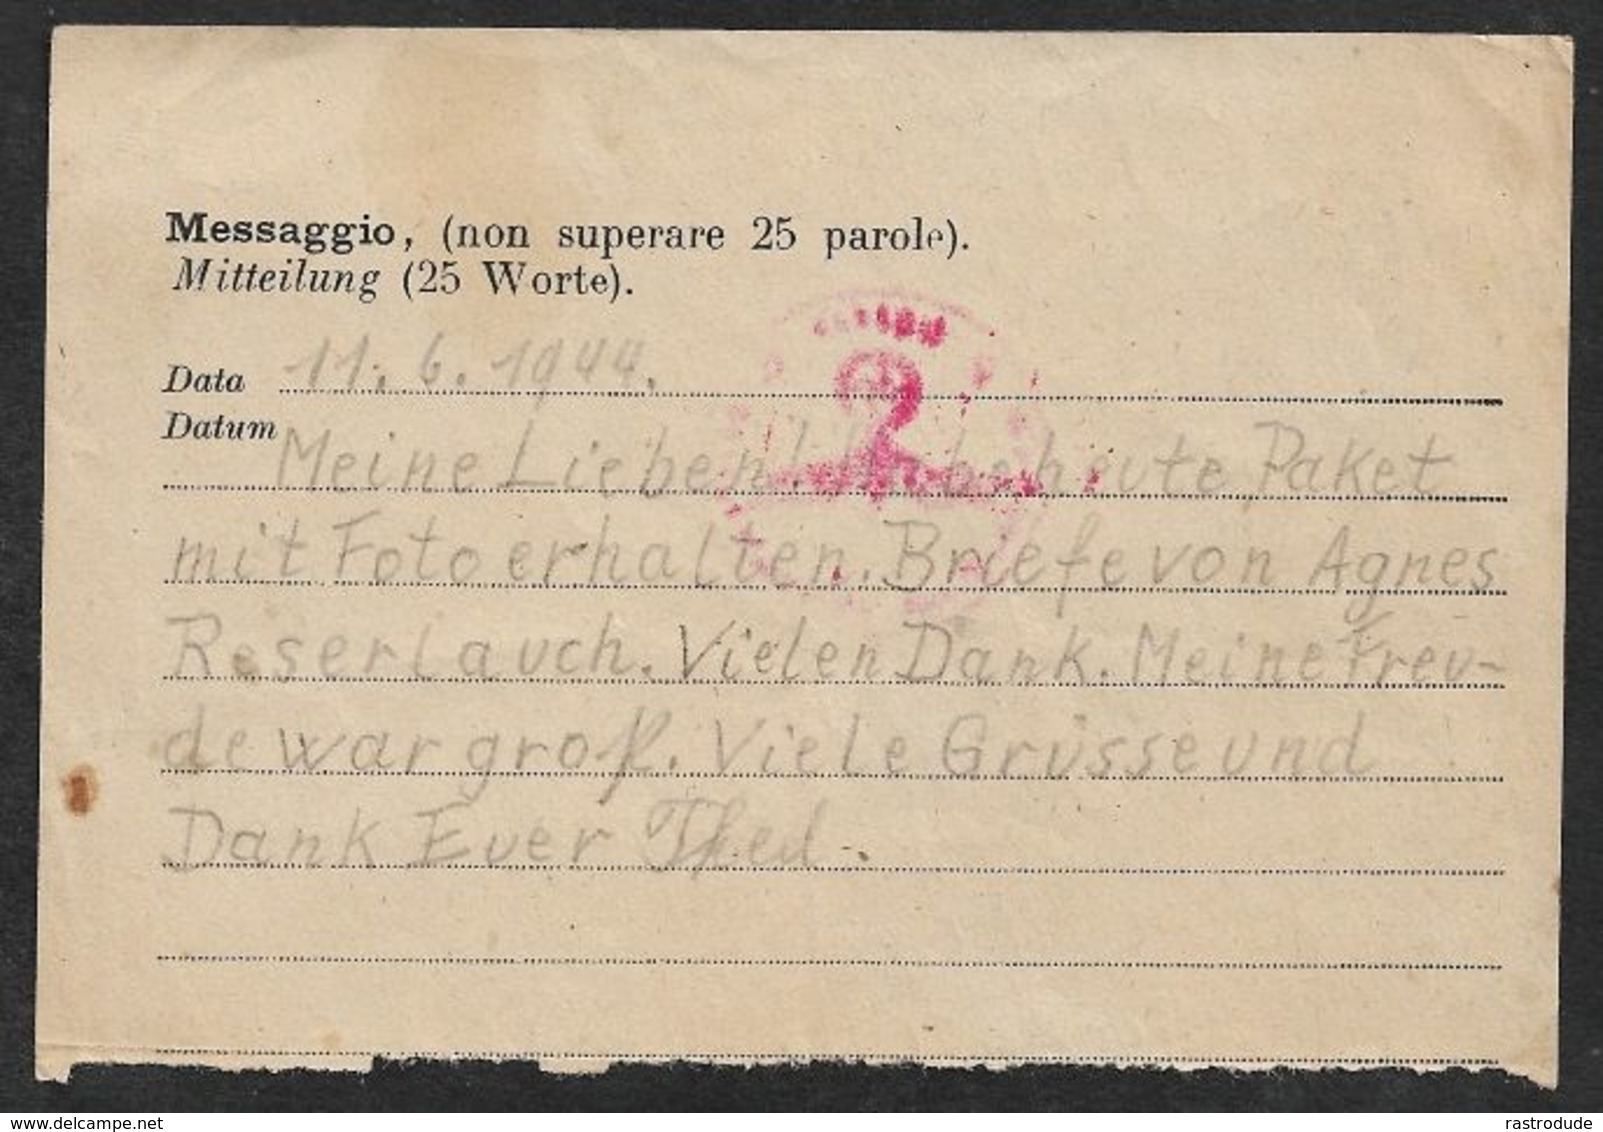 Messaggio, (non superare 25 parole).
Mitteilung (25 Worte).
Data 11. 6. 1944.
Datum
Meine Lieben! Habe heute Paket
mit Foto erhalten. Briefe von Agnes
Reserl auch. Vielen Dank. Meine Freu-
de war groß. Viele Grüsse und
Dank Euer
2
www.delcampe.net
rastrodude